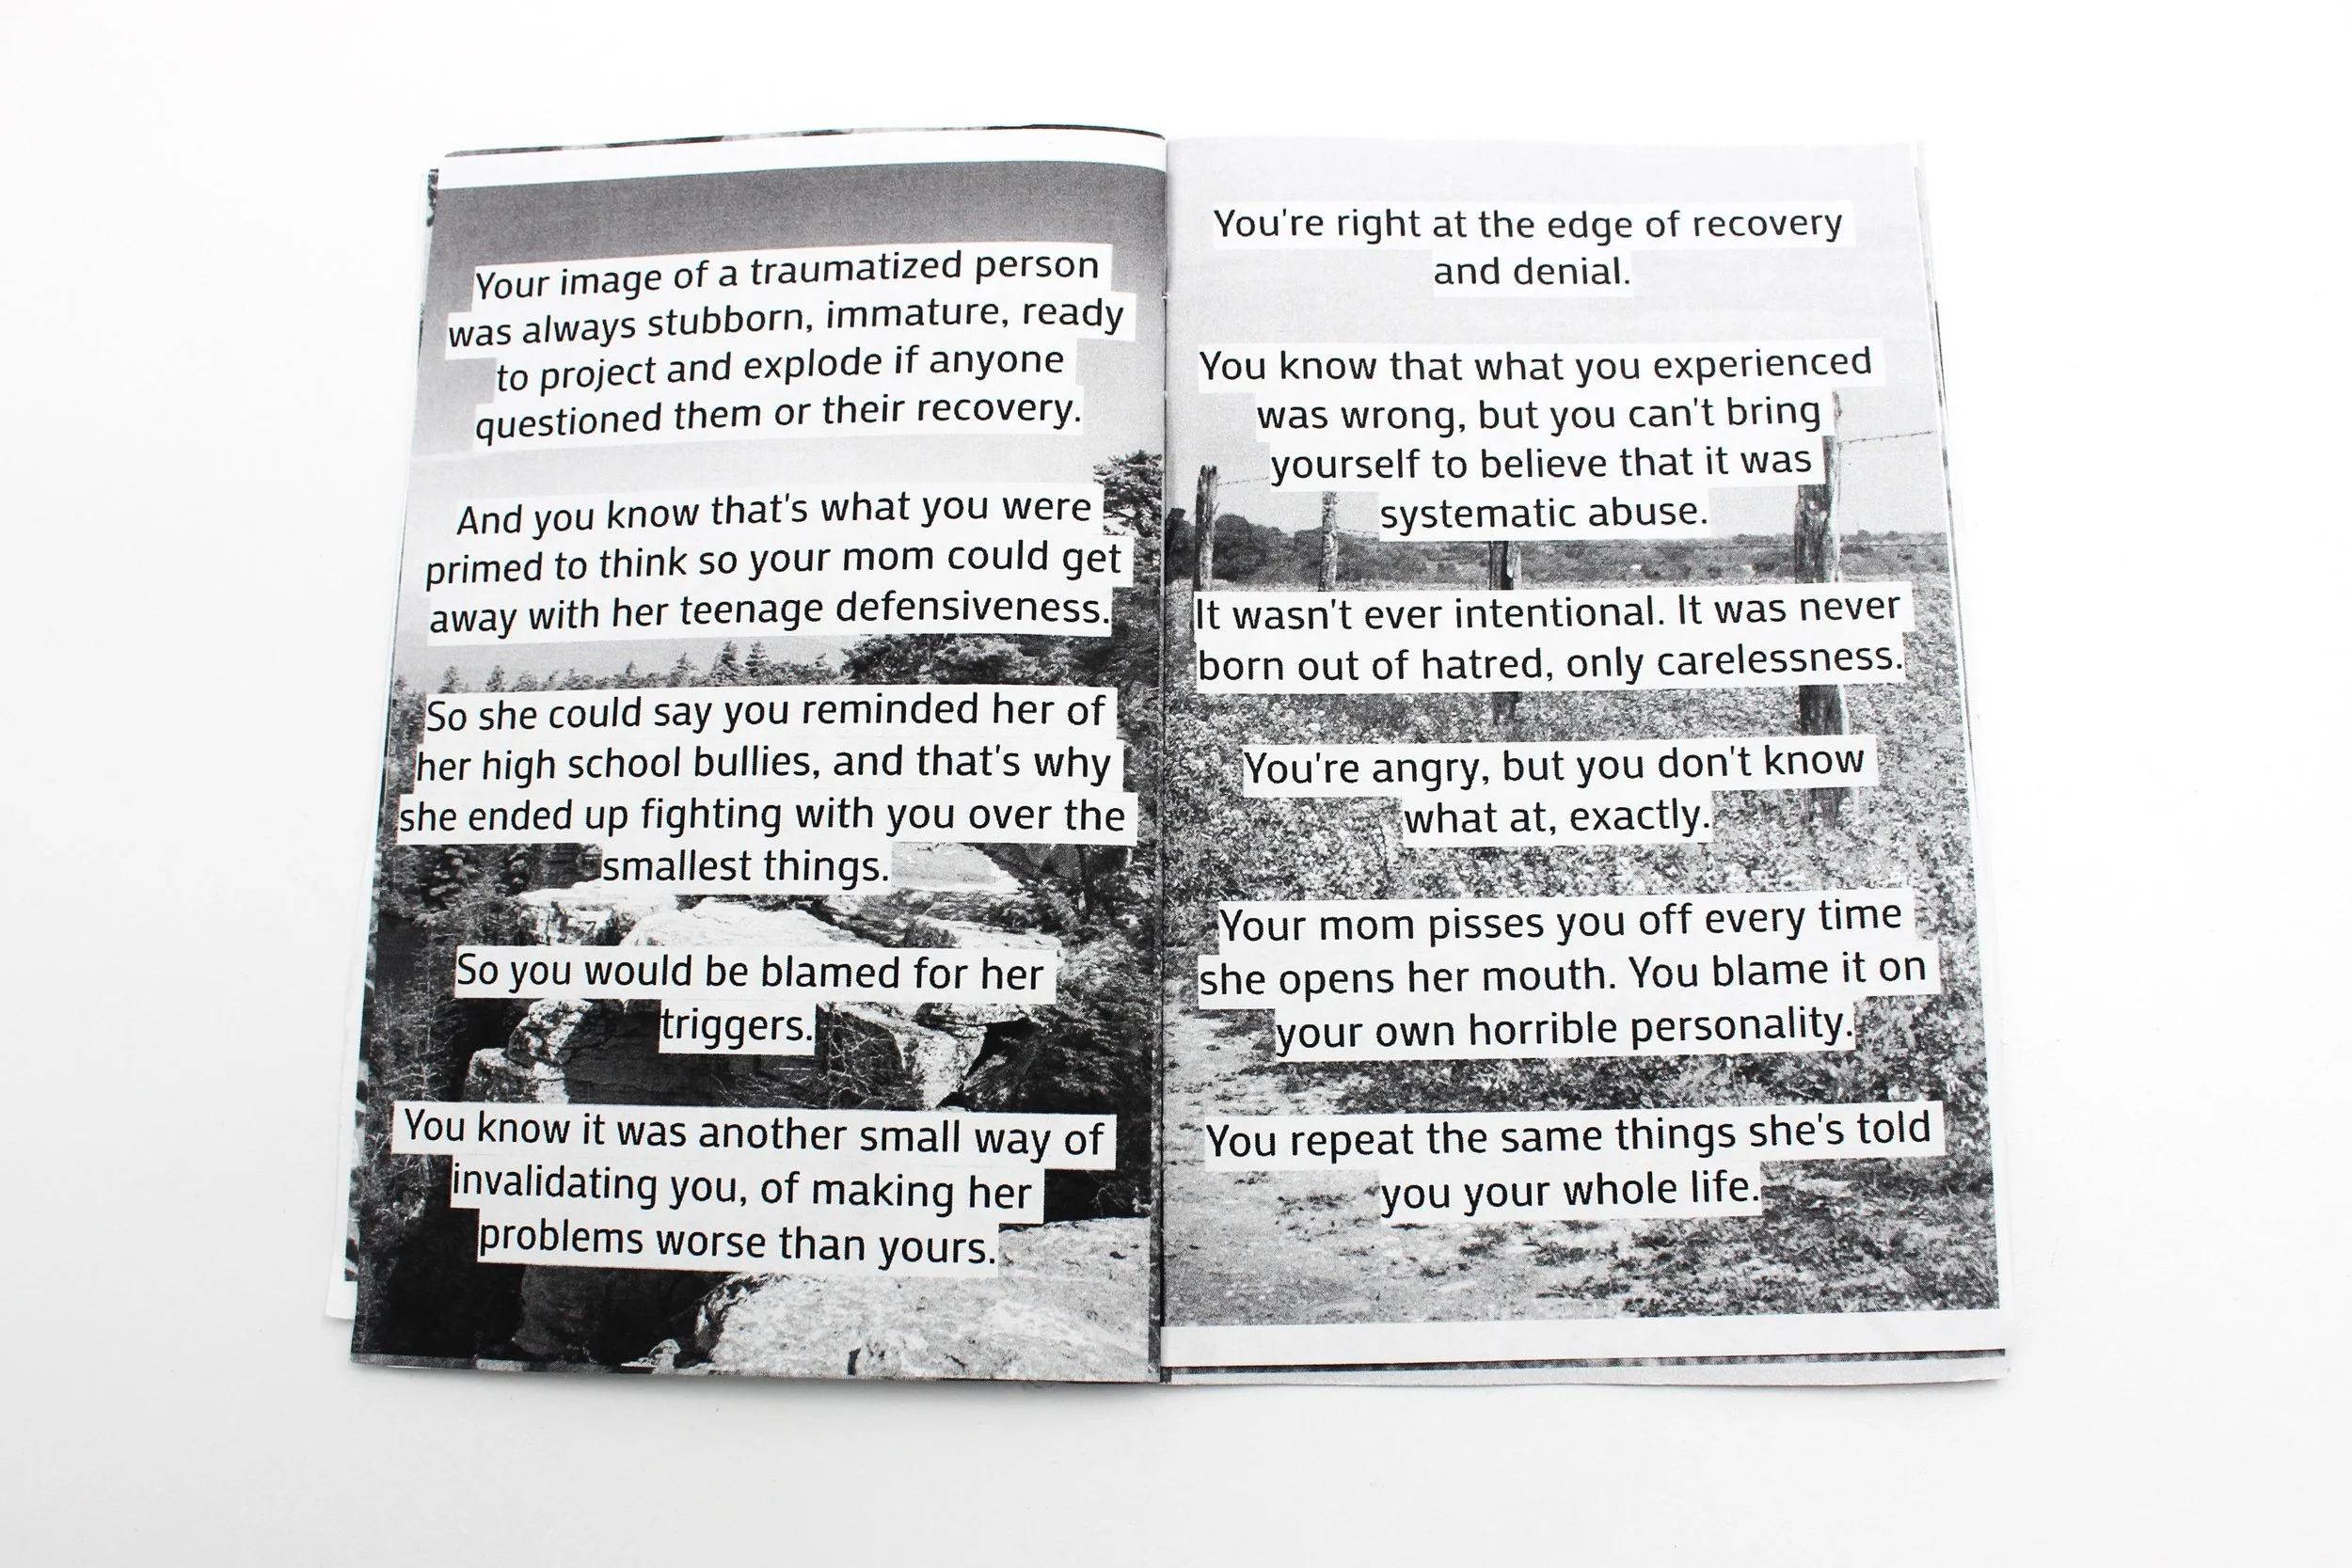 Your image of a traumatized person
was always stubborn, immature, ready
to project and explode if anyone
questioned them or their recovery.
And you know that's what you were
primed to think so your mom could get
away with her teenage defensiveness.
So she could say you reminded her of
her high school bullies, and that's why
she ended up fighting with you over the
smallest things.
So you would be blamed for her
triggers.
You know it was another small way of
invalidating you, of making her
problems worse than yours.
You're right at the edge of recovery
and denial.
You know that what you experienced
was wrong, but you can't bring
yourself to believe that it was
systematic abuse.
It wasn't ever intentional. It was never
born out of hatred, only carelessness.
You're angry, but you don't know
what at, exactly.
Your mom pisses you off every time
she opens her mouth. You blame it on
your own horrible personality.
You repeat the same things she's told
you your whole life.